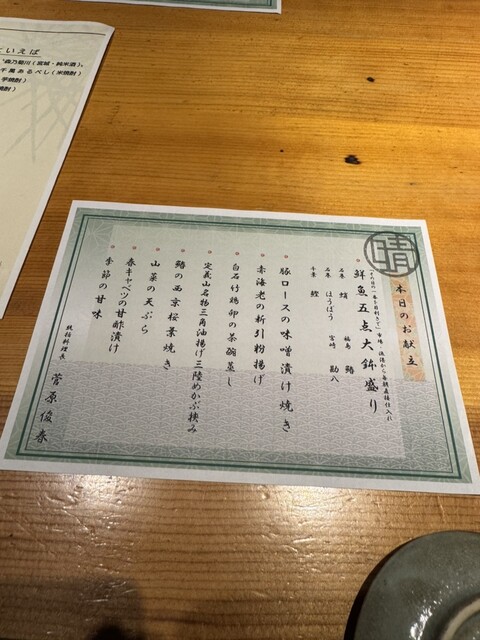 晴
本日のお献立
鮮魚五点大鉢盛り
石巻 蛸 福島 鰆
石巻 ほうぼう 宮崎 勘八
千葉 鰹
豚ロースの味噌漬け焼き
赤海老の新引粉揚げ
白石竹鶏卵の茶碗蒸し
定義山名物三角油揚げ三陸めかぶ挟み
鰆の西京桜葉焼き
山菜の天ぷら
春キャベツの甘酢漬け
季節の甘味
統括料理長 菅原俊春
といえば
森乃菊川(宮城・純米酒)、
(米焼酎)
芋焼酎)